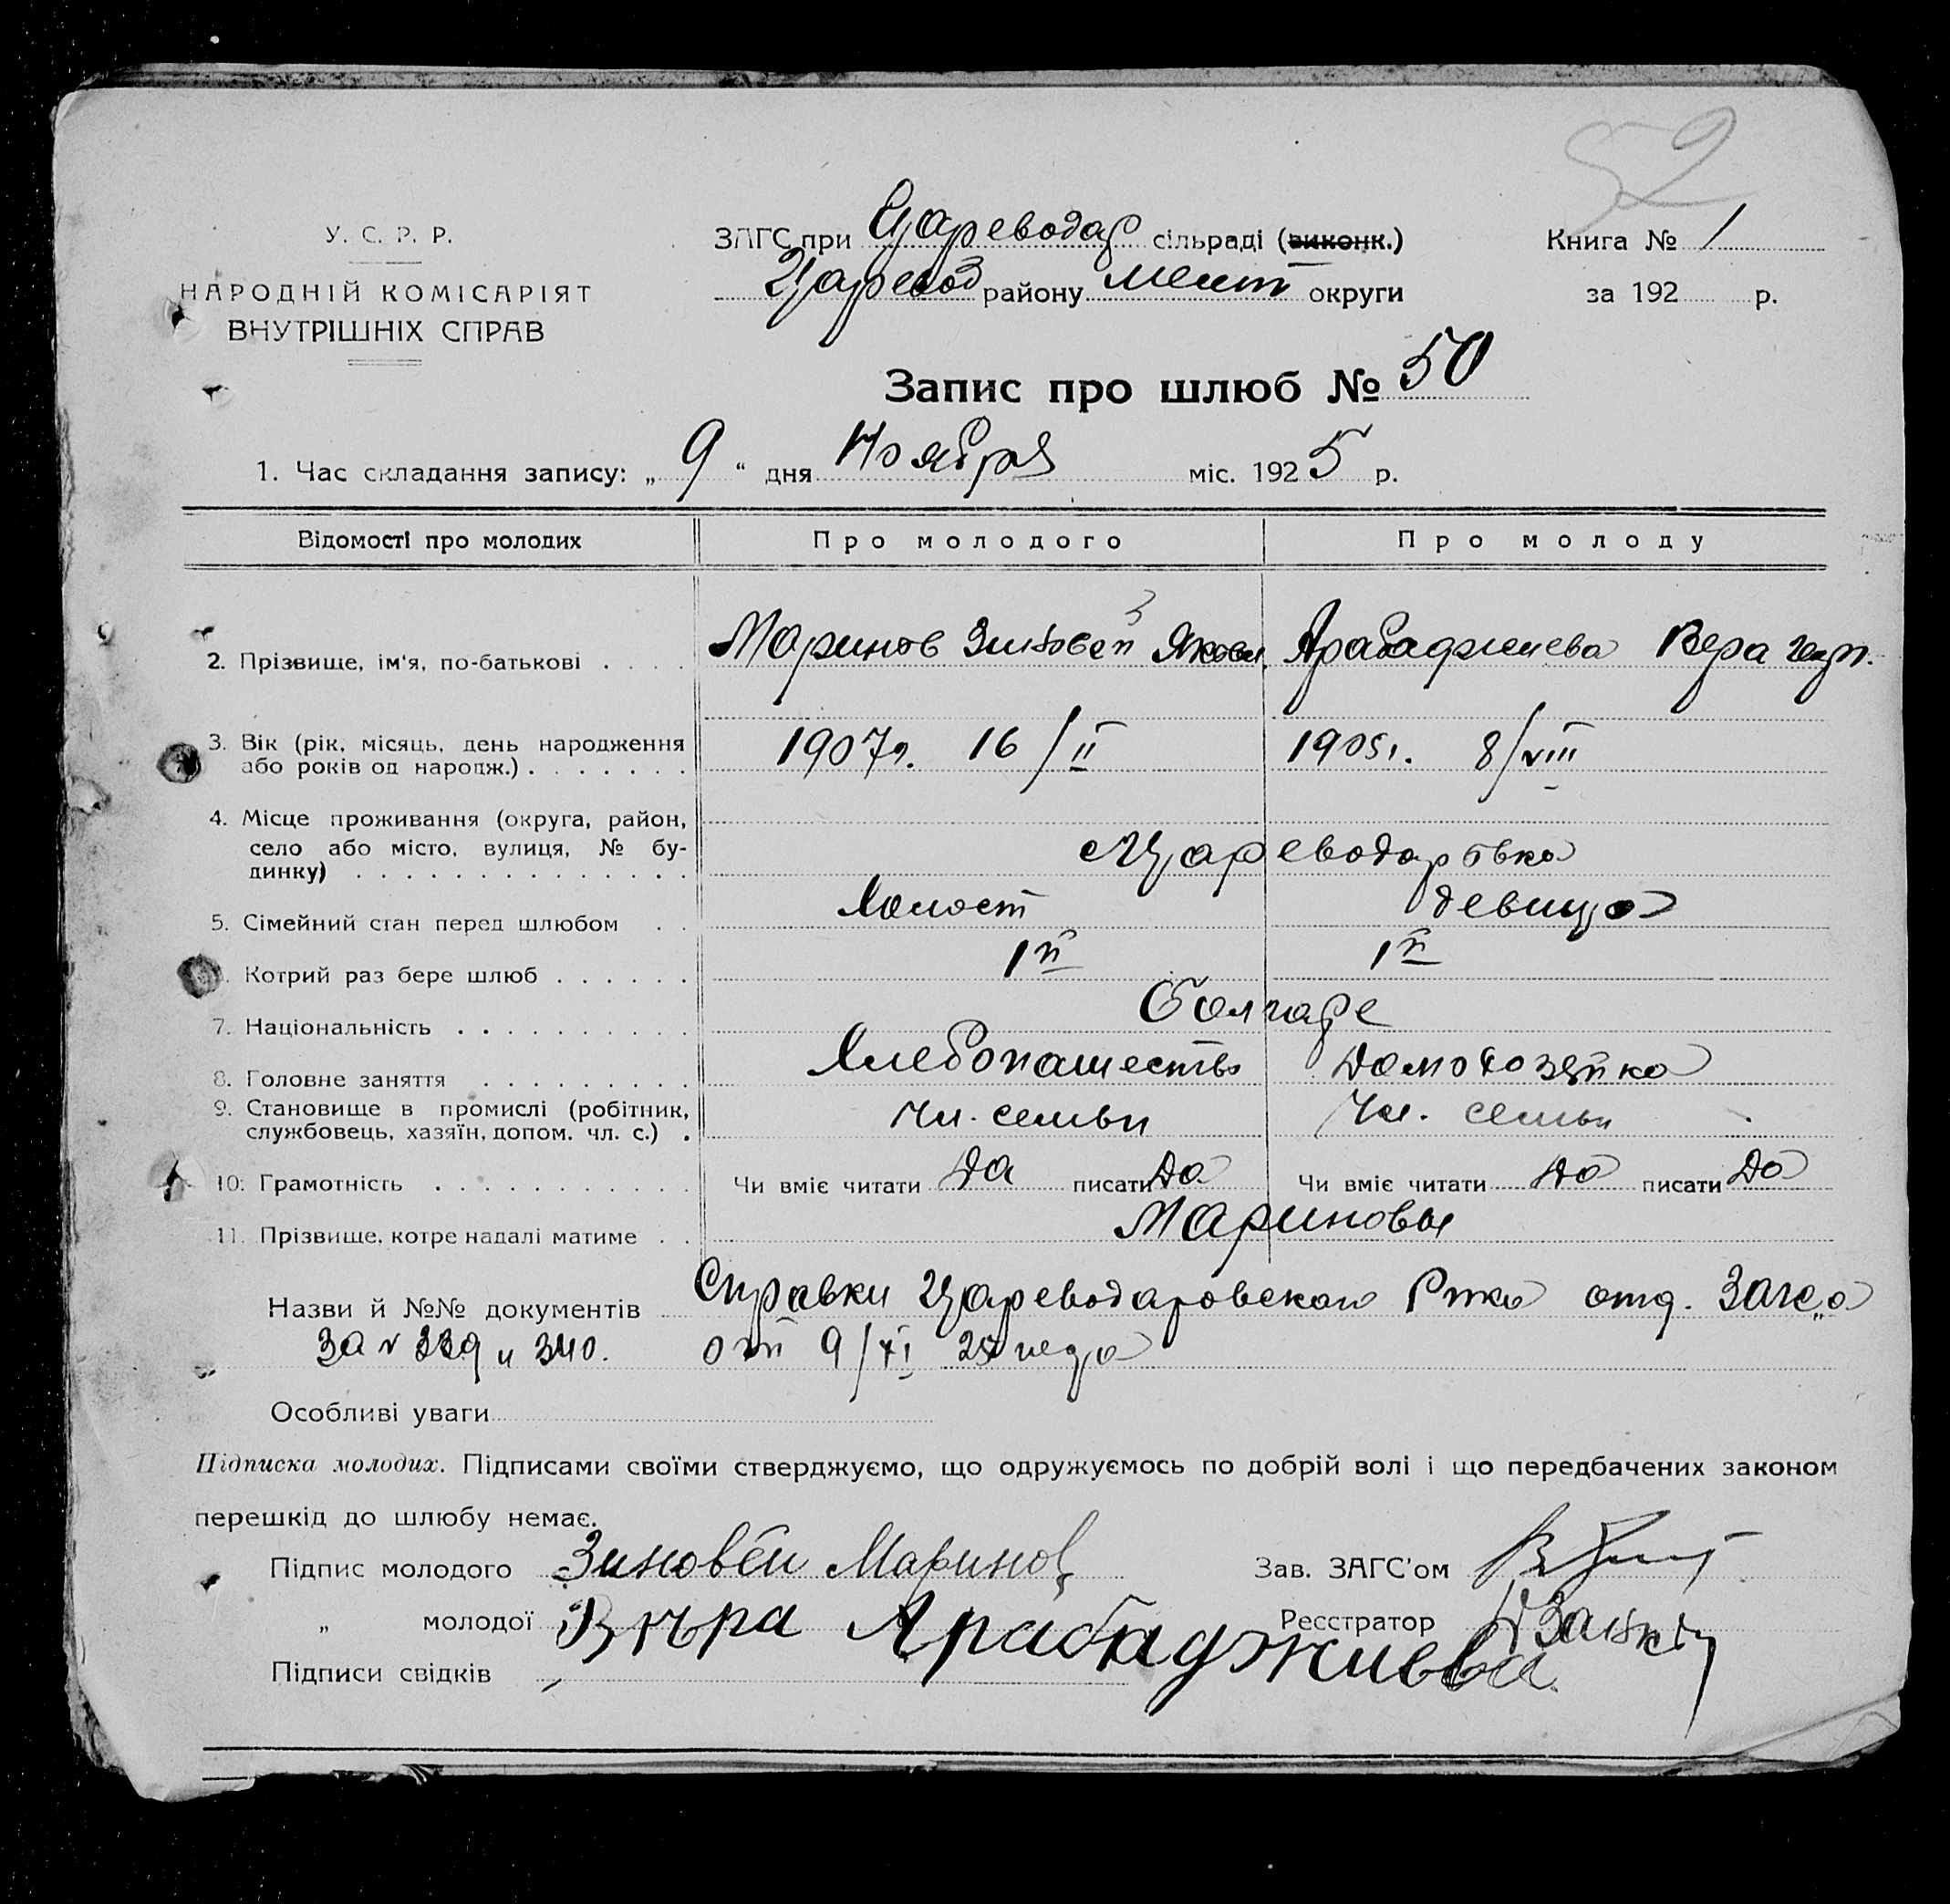 52
У. С. Р. Р.
НАРОДНІЙ КОМІСАРІЯТ
ВНУТРІШНІХ СПРАВ
ЗАГС при Цареводар сільраді (виконк.)
Царевод району Мелит округи
Книга № 1
за 192 р.
Запис про шлюб № 50
1. Час складання запису: „ 9 “ дня Ноября міс. 1925 р.
Відомості про молодих Про молодого Про молоду
2. Прізвище, ім'я, по-батькові . . . . Маринов Зиновей Яковл. Арабаджиева Вера
3. Вік (рік, місяць, день народження
або років од народж.) . . . . . . . 1907г. 16/II 1905г. 8/VIII
4. Місце проживання (округа, район,
село або місто, вулиця, № бу-
динку) . . . . . . . . . . . . . . Цареводаровка
5. Сімейний стан перед шлюбом . . Холост девица
Котрий раз бере шлюб . . . . . . 1й 1й
7. Національність . . . . . . . . . . Болгаре
8. Головне заняття . . . . . . . . . Хлебопашество Домохозяйка
9. Становище в промислі (робітник,
службовець, хазяїн, допом. чл. с.) . Чл. семьи Чл. семьи
10. Грамотність . . . . . . . . . . . Чи вміє читати Да писати Да Чи вміє читати Да писати Да
11. Прізвище, котре надалі матиме . . Мариновы
Назви й №№ документів Справки Цареводаровского Рика отд. Загса
за № 339 и 340. от 9/XI 25 года
Особливі уваги
Підписка молодих. Підписами своїми стверджуємо, що одружуємось по добрій волі і що передбачених законом
перешкід до шлюбу немає.
Підпис молодого Зиновей Маринов Зав. ЗАГС'ом
„ молодої Вѣра Арабаджиева Реєстратор
Підписи свідків